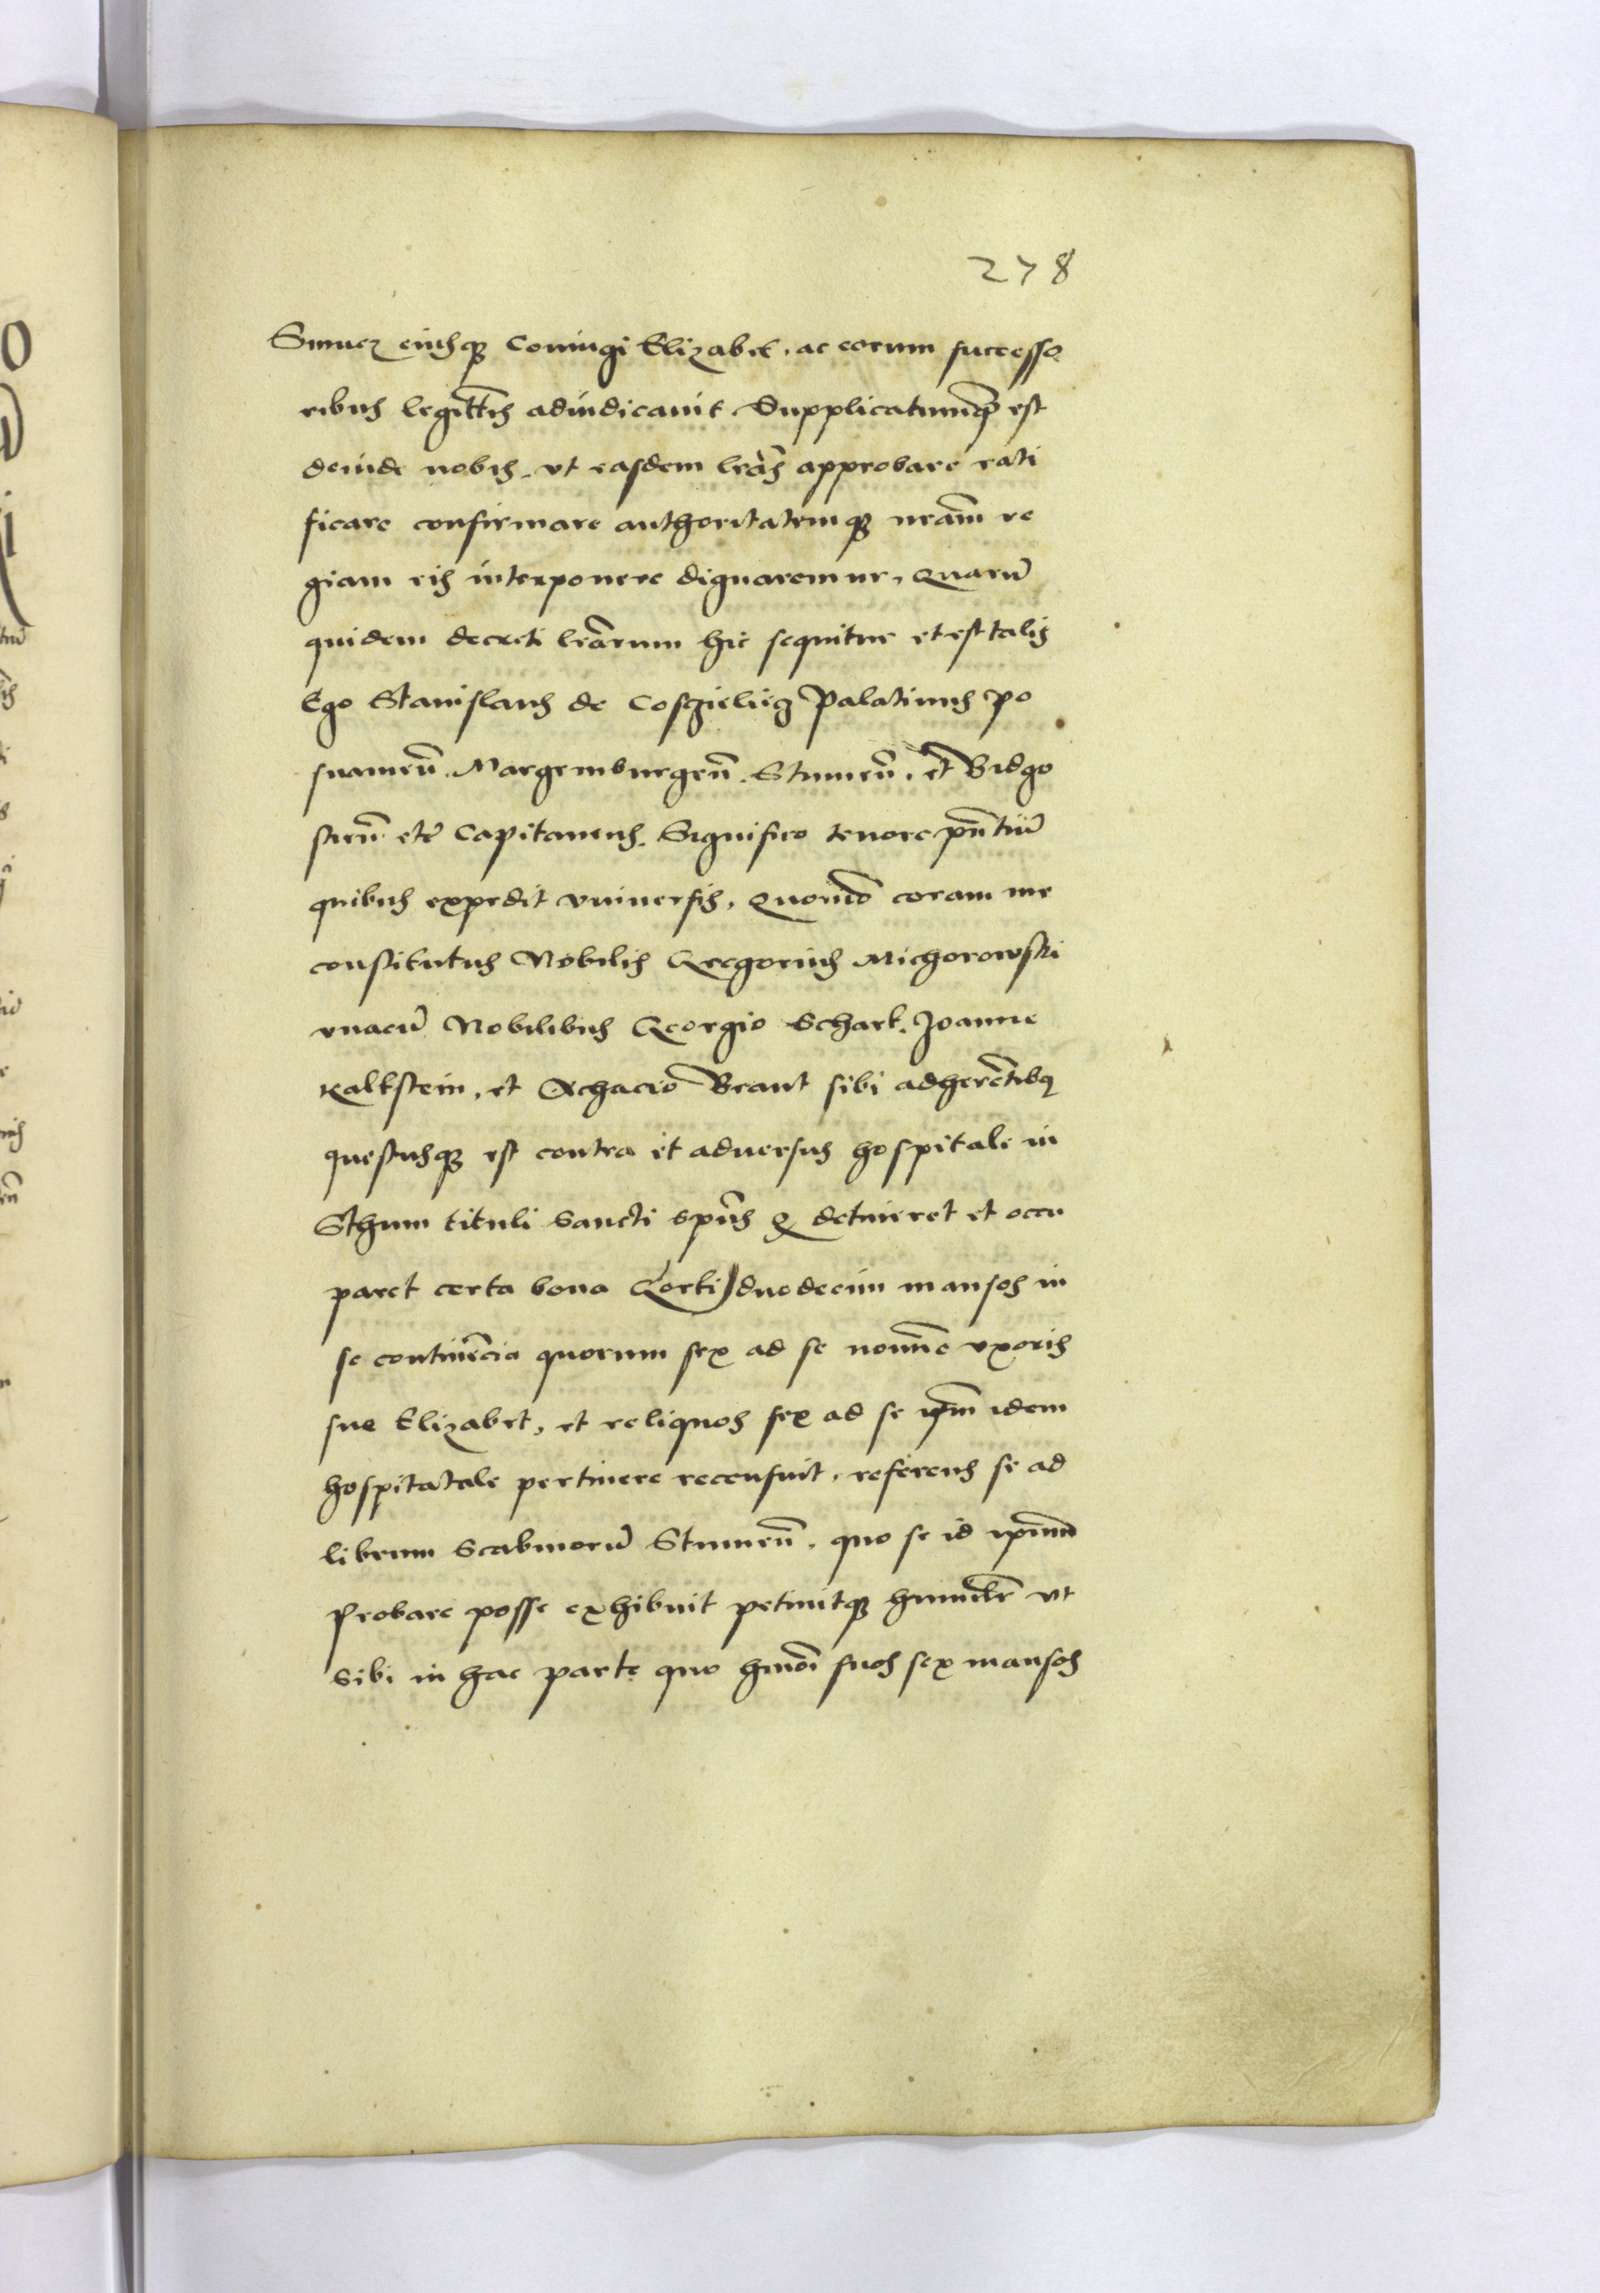 278
Simicz eiusq coniugi Elizabet, ac eorum successo
ribus legittis adiudicauit Supplicatumq est
deinde nobis, vt easdem lras approbare rati
ficare confirmare authoritatemq nram re
giam eis interponere dignaremur, Quarum
quidem decreti lrarum hic sequitur et est talis
Ego Stanislaus de Coscieliecz Palatinus Po
snanien. Margemburgen. Stumen. et Bidgo
stien etc Capitaneus. Significo tenore pntium
quibus expedit vniuersis, Quomodo coram me
constitutus Nobilis Gregorius Michorowski
vnacum Nobilibus Georgio Schark. Joanne
Kalkstein, et Achacio Brant sibi adherentibus
questusq est contra et aduersus hospitale in
Sthum tituli Sancti Spus q detineret et occu
paret certa bona Gorki duodecim mansos in
se continencia quorum sex ad se nomine vxoris
sue Elizabet, et reliquos sex ad se ipm idem
hospitatale pertinere recensuit, referens se ad
librum Scabinorum Stumen. quo se id
Probare posse exhibuit petiuitq humiltr vt
sibi in hac parte quo hmoi suos sex mansos